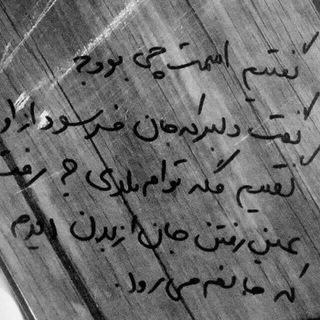 گفتیم اسمت چی بود؟
گفت دلبر که جان فرسود از او
گفتیم مگه توام بلدی ؟ رفت
یعنی رفتن جان از بدن دیدم
که جانم می رود.